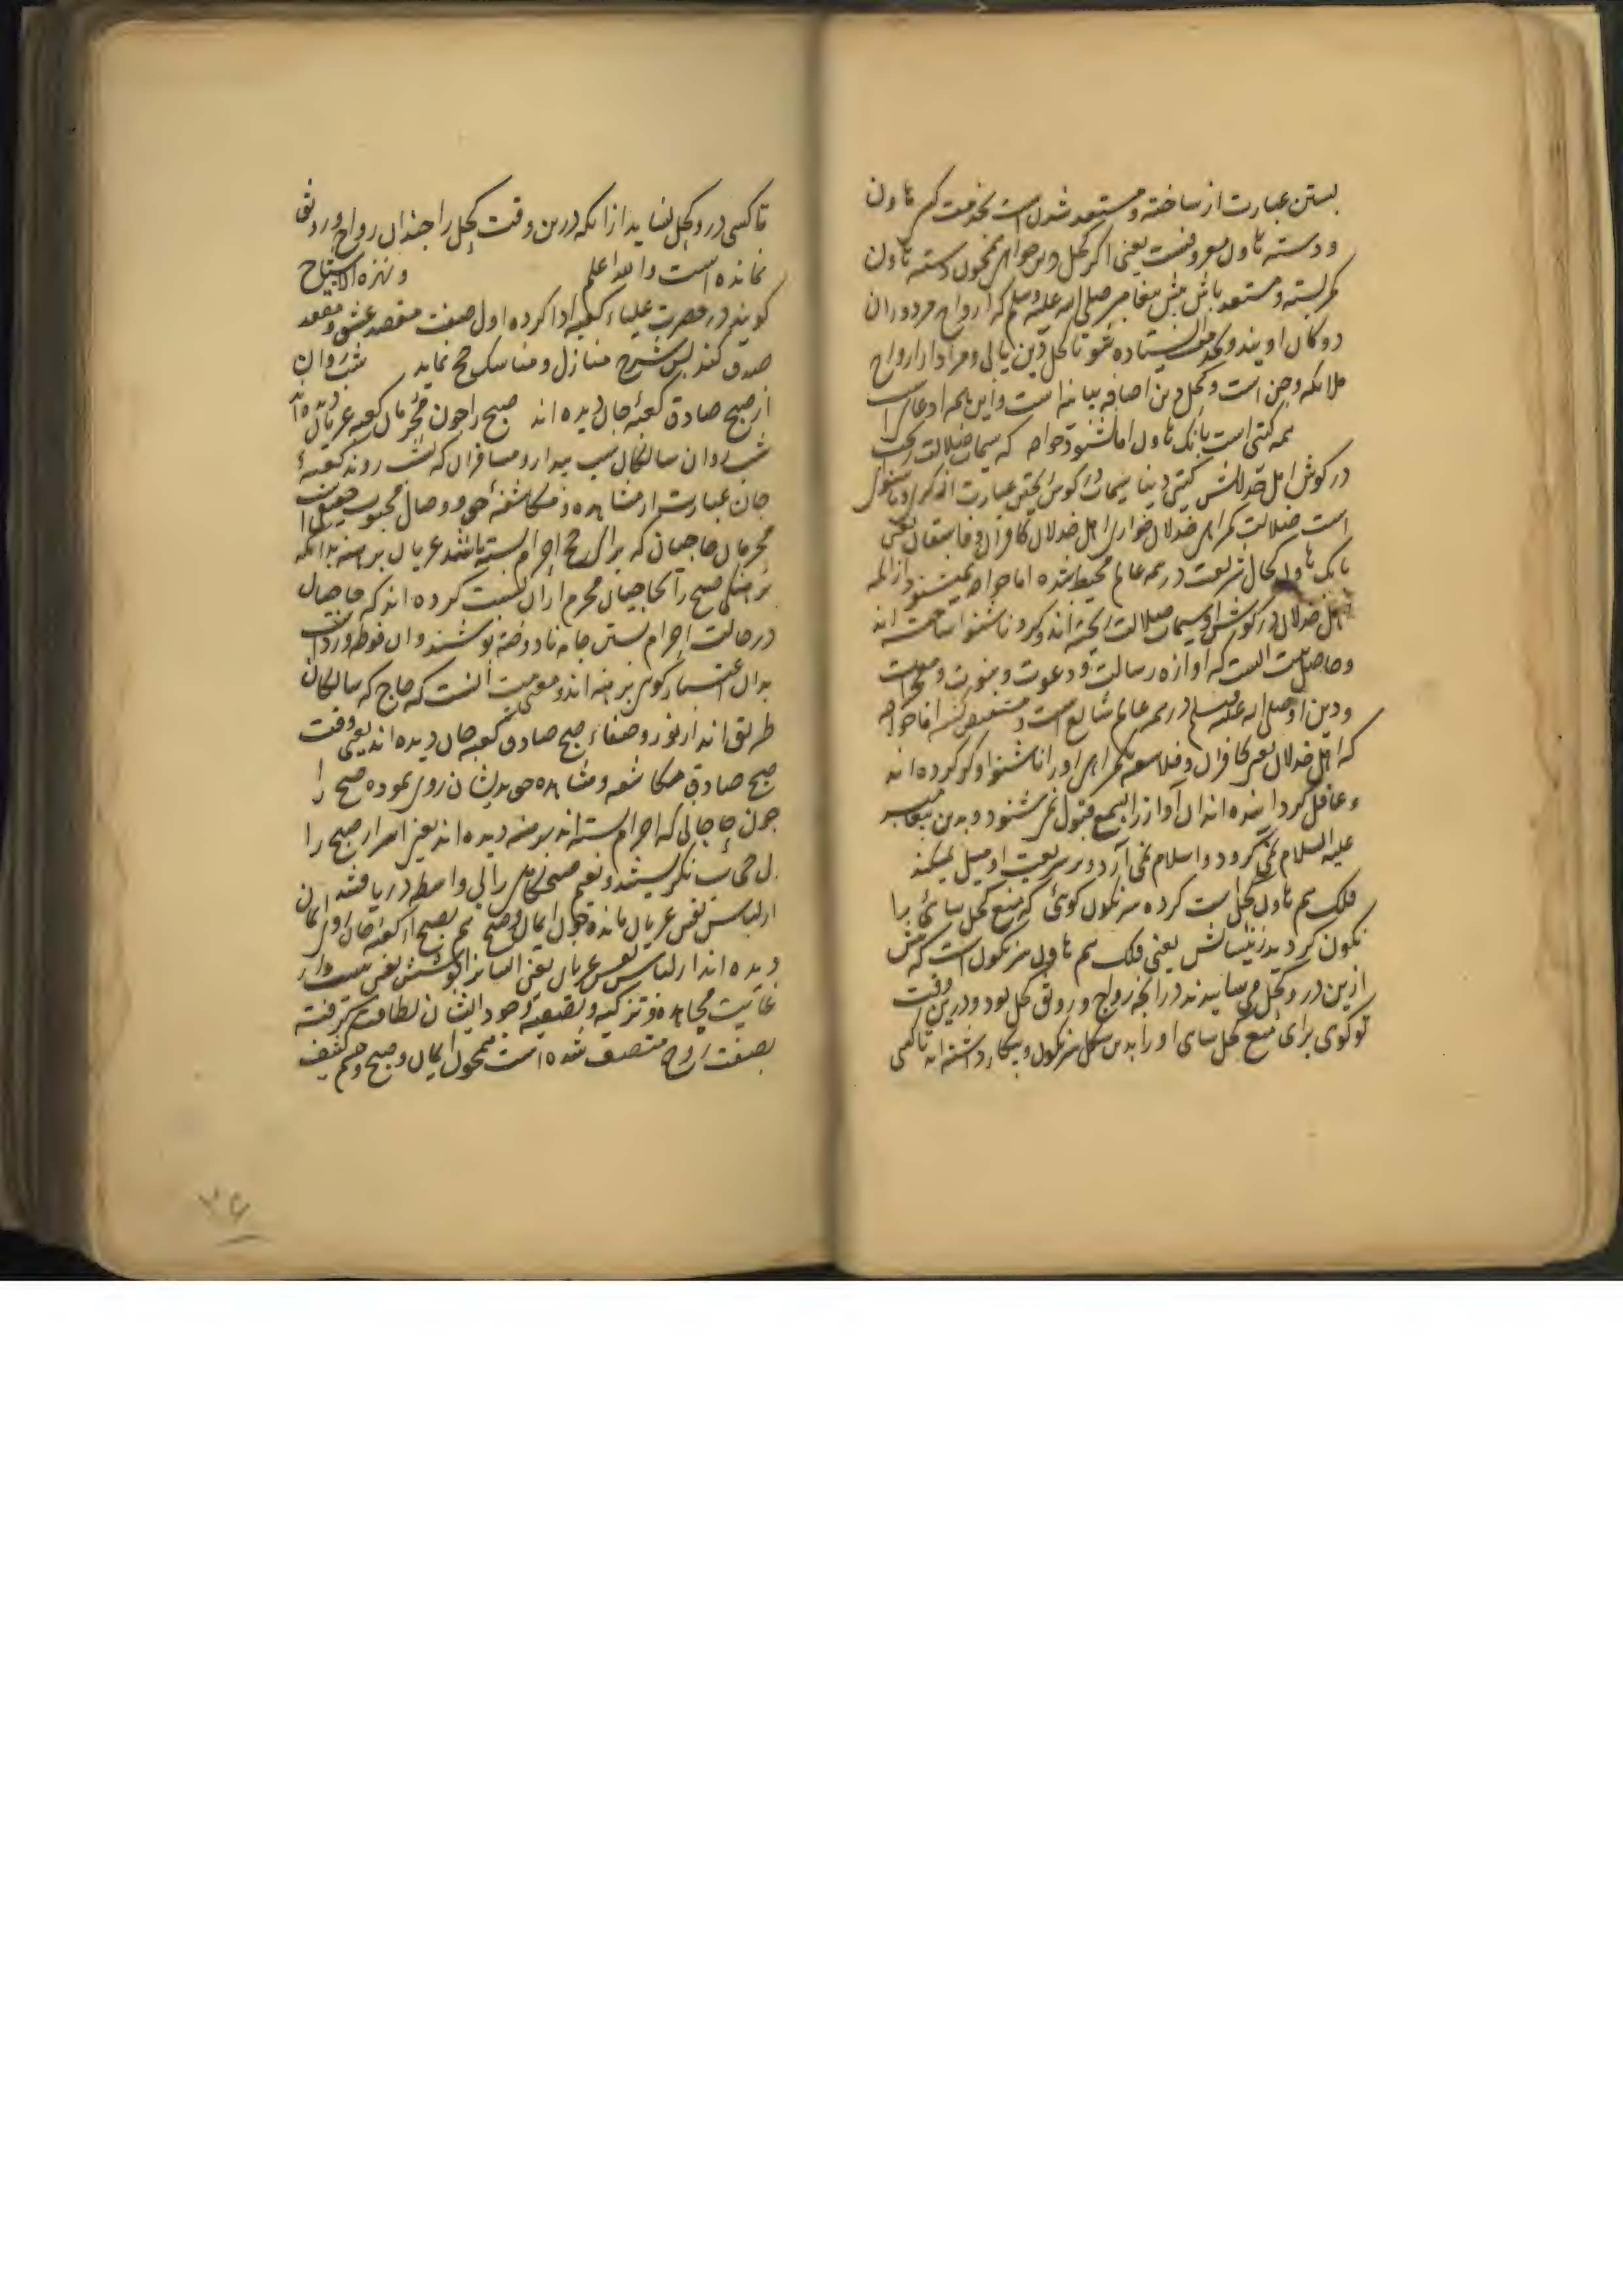 بستن عبارت از ساخته و مستعد شدن است بخدمت کسی هاون
و دسته هاون معروفست یعنی اگر کحل دین خواهی همچون دسته هاون
کمر بسته و مستعد باش پیش پیغامبر صلی الله علیه وسلم که ارواح مزدوران
دوکان اویند و بخدمت ایستاده شو تا کحل دین یابی و مراد از ارواح
ملائکه و جن است و کحل دین اضافه بیانیه است و این همه ادعائی است
همه گیتی است بانک هاون اما نشنود خواجه که سیماب ضلالت ریخت
در گوش اهل خذلانش گیتی دنیا سیماب در گوش ریختن عبارت از کر و ناشنوا
است ضلالت گمراهی خذلان خواری اهل خذلان کافران و فاسقان یعنی
بانک هاون کحال شریعت در همه عالم محیط شده اما خواجه نمیشنود از آنکه
اهل خذلان در گوش او سیماب ضلالت ریخته اند و کر و ناشنوا ساخته اند
و حاصل بیت آنست که آوازه رسالت و دعوت و نبوت و معجزات
و دین او صلی الله علیه وسلم در همه عالم شایع است و مستفیض اما خواجه
که اهل خذلان یعنی کافران و فلاسفه گمراهی او را ناشنوا و کر کرده اند
و غافل گردانیده اند آن آواز را بسمع قبول نمی شنود و بدین پیغامبر
علیه السلام نمی گرود و اسلام نمی آرد و بر شریعت او میل نمیکند
فلک هم هاون کحل است کرده سرنگون گوئی که منع کحل سائی را
نگون کردند زینسانش یعنی فلک هم هاون سرنگون است که پیش
ازین درو کحل می ساییدند در آنکه رواج و رونق کحل بود و درین وقت
تو گوی برای منع کحل سای او را بدین شکل سرنگون و بیکار داشته اند تا کسی
تا کسی درو کحل نساید از آنکه درین وقت کحل را چندان رواج و رونقی
نمانده است والله اعلم و نزهة الارتیاح
گویند در حضرت علیاء کعبه ادا کرده اول صفت مقصد عشق و مقعد
صدق کند پس شرح منازل و مناسک حج نماید شب روان
از صبح صادق کعبه جان دیده اند صبح را چون محرمان کعبه عریان دیده اند
شب روان سالکان شب بیدار و مسافران که شب روند کعبه
جان عبارت از مشاهده و مکاشفه حق و وصال محبوب حقیقی است
محرمان حاجیان که برای حج احرام بسته باشند عریان برهنه بدانکه
برهنگی صبح را بحاجیان محرم از آن نسبت کرده اند که حاجیان
در حالت احرام بستن جامه نادوخته پوشند و آن فوطه و رداست
بدان اعتبار گوئی برهنه اند و معنی بیت آنست که حاج که سالکان
طریق اند از نور و صفاء صبح صادق کعبه جان دیده اند یعنی وقت
صبح صادق مکاشفه و مشاهده حق بدیشان روی نموده صبح را
چون حاجیانی که احرام بسته اند برهنه دیده اند یعنی اسرار صبح را
بی حجاب نگریستند و نعیم صبحگاهی را بی واسطه دریافته اند
از لباس نفس عریان مانده چون ایمان و صبح هم بصبح از کعبه جان روی ایمان
دیده اند از لباس نفس عریان یعنی ایشانرا پوشش نفس نیست و از
غایت مجاهده و تزکیه و تصفیه وجود ایشان لطافت گرفته
بصفت روح متصف شده است همچون ایمان و صبح و جسم کثیف
۳۶